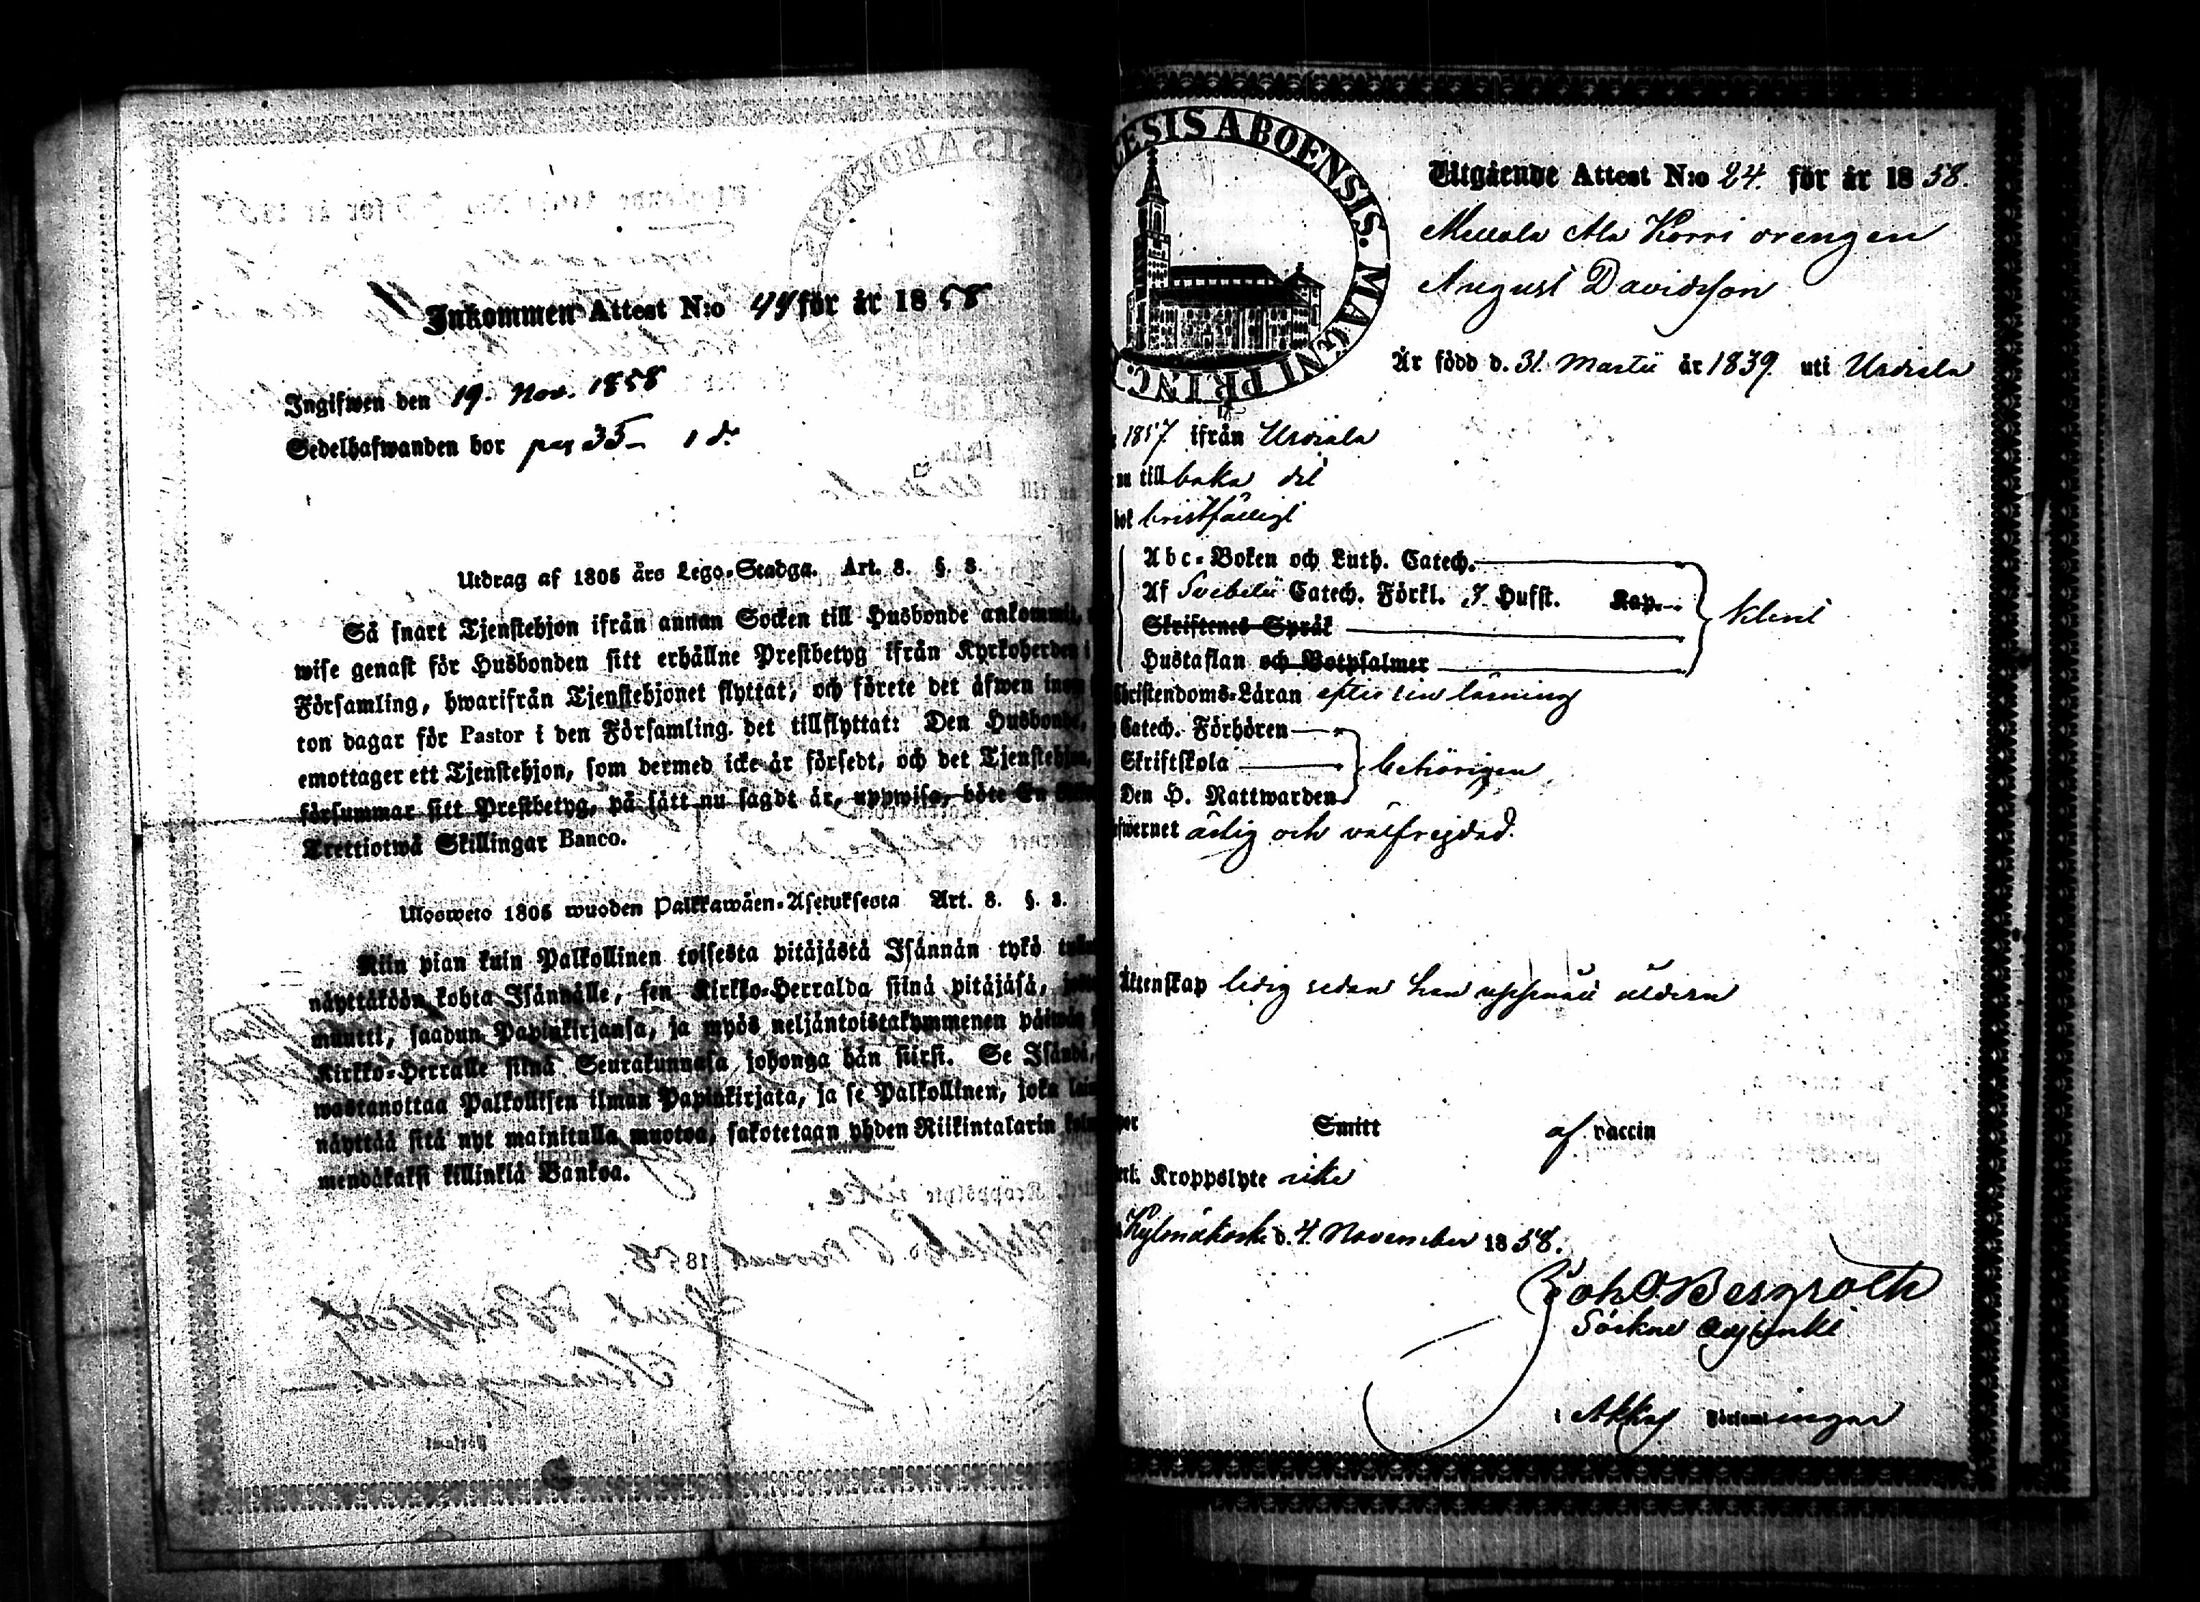 Inkommen Attest N:o 44 för år 1858
Ingifwen den 19. Nov. 1858
Sedelhafwanden bor pag 35
Utdrag af 1805 års Lego-Stadga. Art. 8. §. 3.
Så snart Tjenstehjon ifrån annan Socken till Husbonde ankommit,
wise genast för Husbonden sitt erhållne Prestbetyg ifrån Kyrkoherden i
Församling, hwarifrån Tjenstehjonet flyttat, och förete det äfwen inom
ton dagar för Pastor i den Församling, det tillflyttat: Den Husbonde,
emottager ett Tjenstehjon, som dermed icke är försedt, och det Tjenstehjon,
försummar sitt Prestbetyg, på sätt nu sagdt är, uppwisa, böte En
Trettiotwå Skillingar Banco.
Ulosweto 1805 wuoden Palkkawäen-Asetuksesta Art. 8. §. 3.
Niin pian kuin Palkollinen toisesta pitäjästä Isännän tykö
näyttäköön kohta Isännälle, sen Kirkko-Herralda siinä pitäjäsä,
muutti, saadun Papinkirjansa, ja myös neljäntoistakymmenen päiwän
Kirkko-Herralle siinä Seurakunnasa johonga hän siirsi. Se Isändä,
wastanottaa Palkollisen ilman Papinkirjata, ja se Palkollinen, joka
näyttää sitä nyt mainitulla muotoa, sakotetaan yhden Riikintalarin
mendäkaksi killinkiä Bankoa.
CESIS ABOENSIS. MAGNI PRINC.
Utgående Attest N:o 24. för år 1858.
Mellola Ala Korri drengen
August Davidsson
Är född d. 31. Martii år 1839. uti Urdiala
1857 ifrån Urdiala
nu tillbaka dit
bok bristfälligt
Abc-Boken och Luth. Catech.
Af Svebelii Catech. Förkl. 3 Hufst. Kap.
Skriftenes Språk
klent
Hustaflan och Botpsalmer
Christendoms-Läran efter sin läsning
Catech. Förhören
Skriftskola
behörigen
Den H. Nattwarden
ärlig och välfrejdad.
Äktenskap ledig sedan han uppnått åldern
Smitt af vaccin
Kroppslyte icke
Kylmäkoski d. 4. November 1858.
Joh. O. Bergroth
Sockne Adjunkt
i Akkas Församlingar